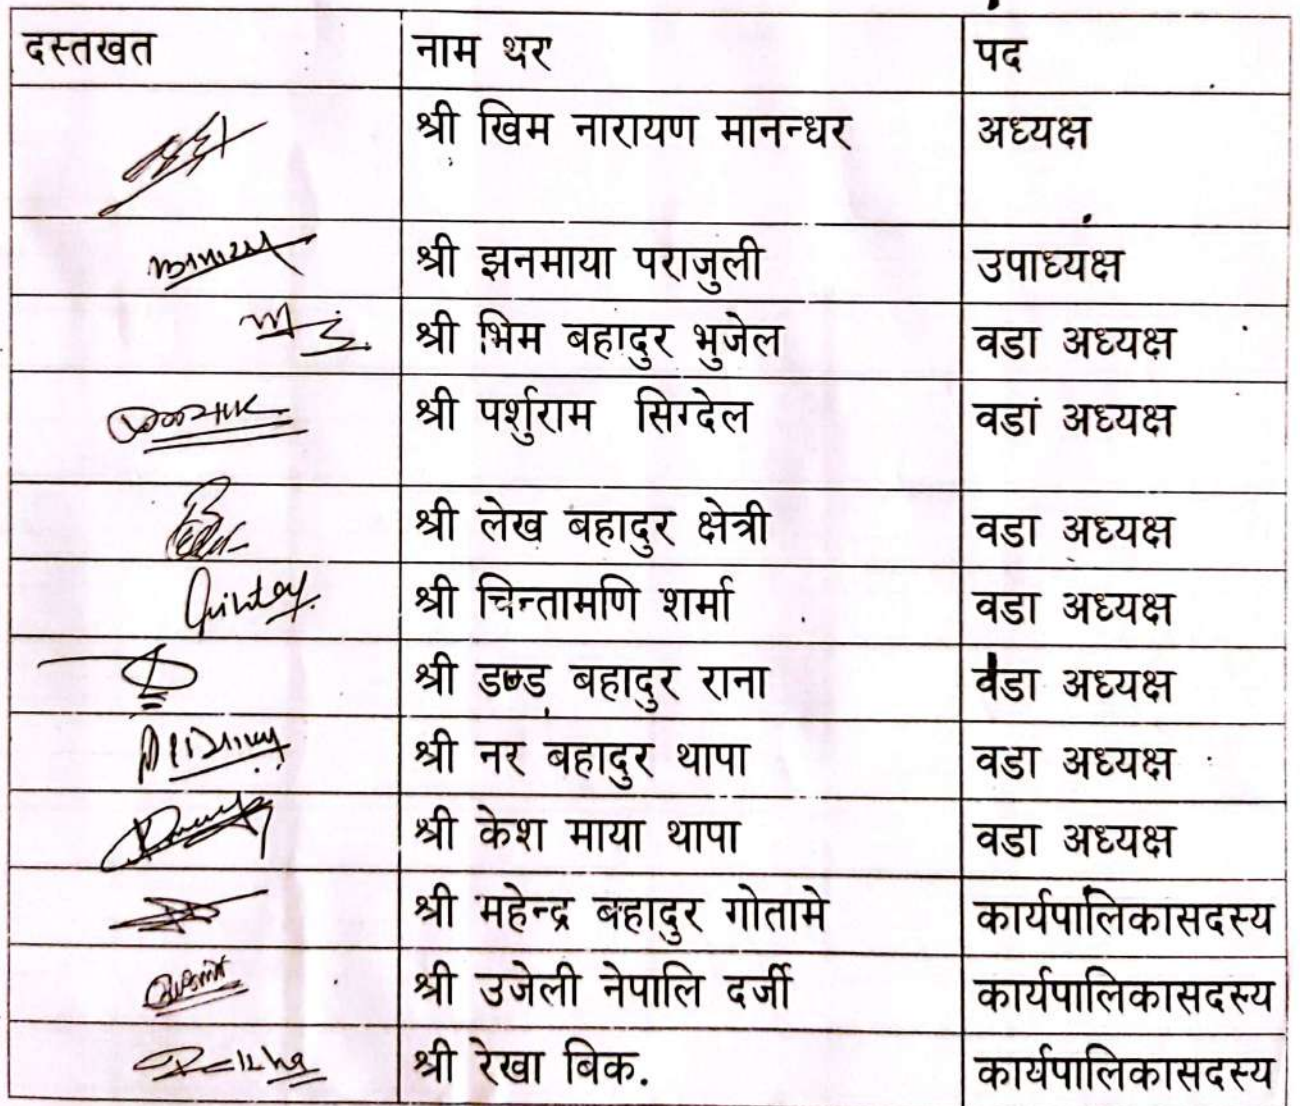 दस्तखत नाम थर पद
श्री खिम नारायण मानन्धर अध्यक्ष
श्री झनमाया पराजुली उपाध्यक्ष
श्री भिम बहादुर भुजेल वडा अध्यक्ष
श्री पर्शुराम सिग्देल वडा अध्यक्ष
श्री लेख बहादुर क्षेत्री वडा अध्यक्ष
श्री चिन्तामणि शर्मा वडा अध्यक्ष
श्री डण्ड बहादुर राना वडा अध्यक्ष
श्री नर बहादुर थापा वडा अध्यक्ष
श्री केश माया थापा वडा अध्यक्ष
श्री महेन्द्र बहादुर गोतामे कार्यपालिकासदस्य
श्री उजेली नेपालि दर्जी कार्यपालिकासदस्य
श्री रेखा बिक. कार्यपालिकासदस्य